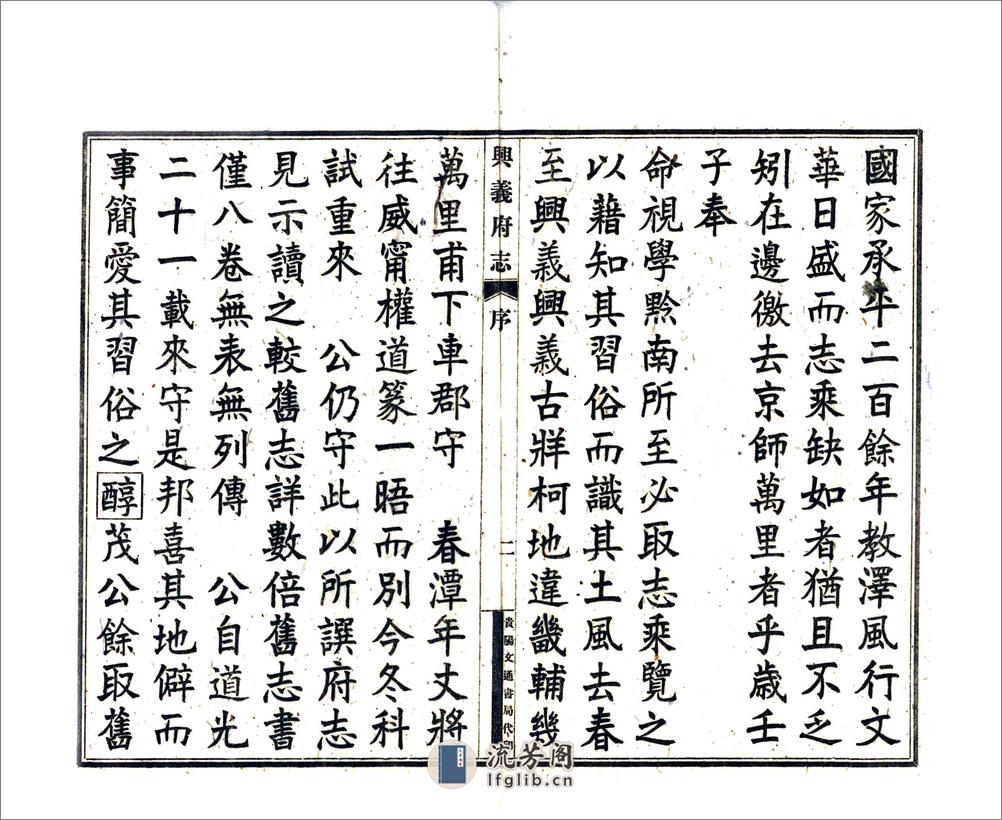 國家承平二百餘年教澤風行文
華日盛而志乘缺如者猶且不乏
矧在邊徼去京師萬里者乎歲壬
子奉
命視學黔南所至必取志乘覽之
以藉知其習俗而識其土風去春
至興義興義古牂柯地違畿輔幾
興義府志
序
二
貴陽文通書局代印
萬里甫下車郡守 春潭年丈將
往威甯權道篆一晤而別今冬科
試重來 公仍守此以所譔府志
見示讀之較舊志詳數倍舊志書
僅八卷無表無列傳 公自道光
二十一載來守是邦喜其地僻而
事簡愛其習俗之醇茂公餘取舊
流芳阁
lfglib.cn